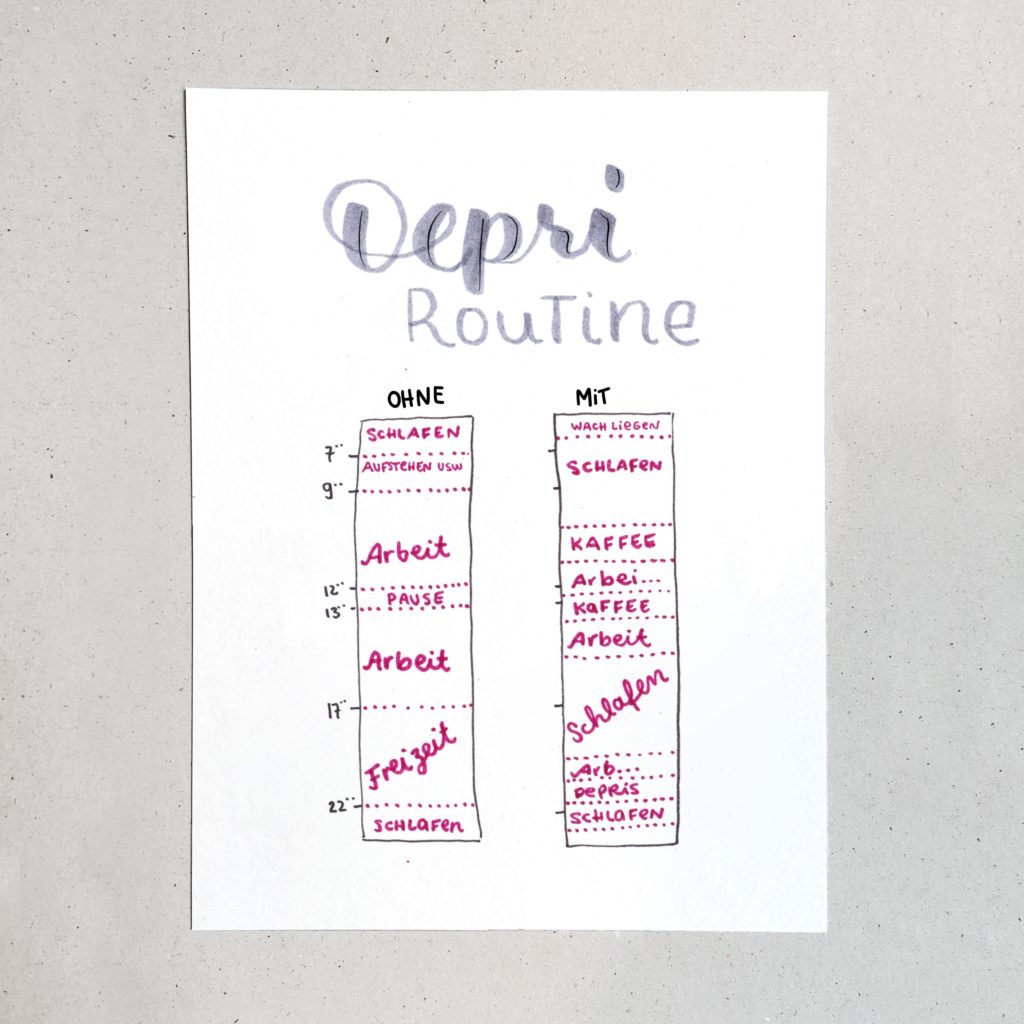 Depri
Routine
OHNE
SCHLAFEN
7°°
AUFSTEHEN USW
9°°
Arbeit
12°°
PAUSE
13°°
Arbeit
17°°
Freizeit
22°°
SCHLAFEN
MIT
WACH LIEGEN
SCHLAFEN
KAFFEE
Arbei...
KAFFEE
Arbeit
Schlafen
Arb...
DEPRIS
SCHLAFEN